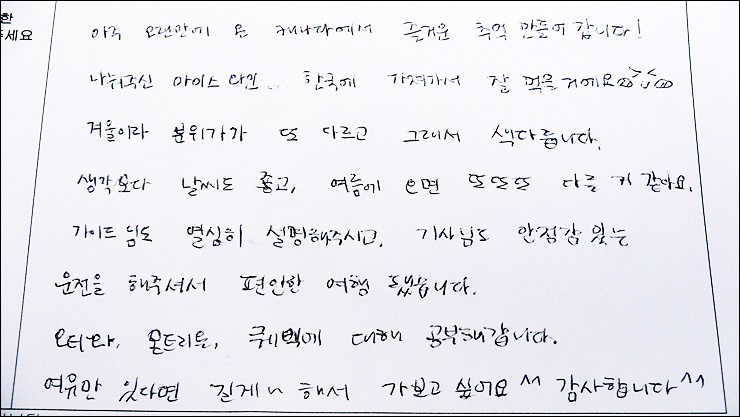 한
주세요
아주 오랜만에 온 캐나다에서 즐거운 추억 만들어 갑니다!
나눠주신 아이스 와인 한국에 가져가서 잘 먹을거에요
겨울이라 분위기가 또 다르고 그래서 색다릅니다.
생각보다 날씨도 좋고, 여름에 오면 또또또 다를 거 같아요.
가이드님도 열심히 설명해주시고, 기사님도 안정감 있는
운전을 해주셔서 편안한 여행 됐습니다.
오타와, 몬트리올, 퀘백에 대해 공부해갑니다.
여유만 있다면 길게 해서 가보고 싶어요 ^^ 감사합니다 ^^